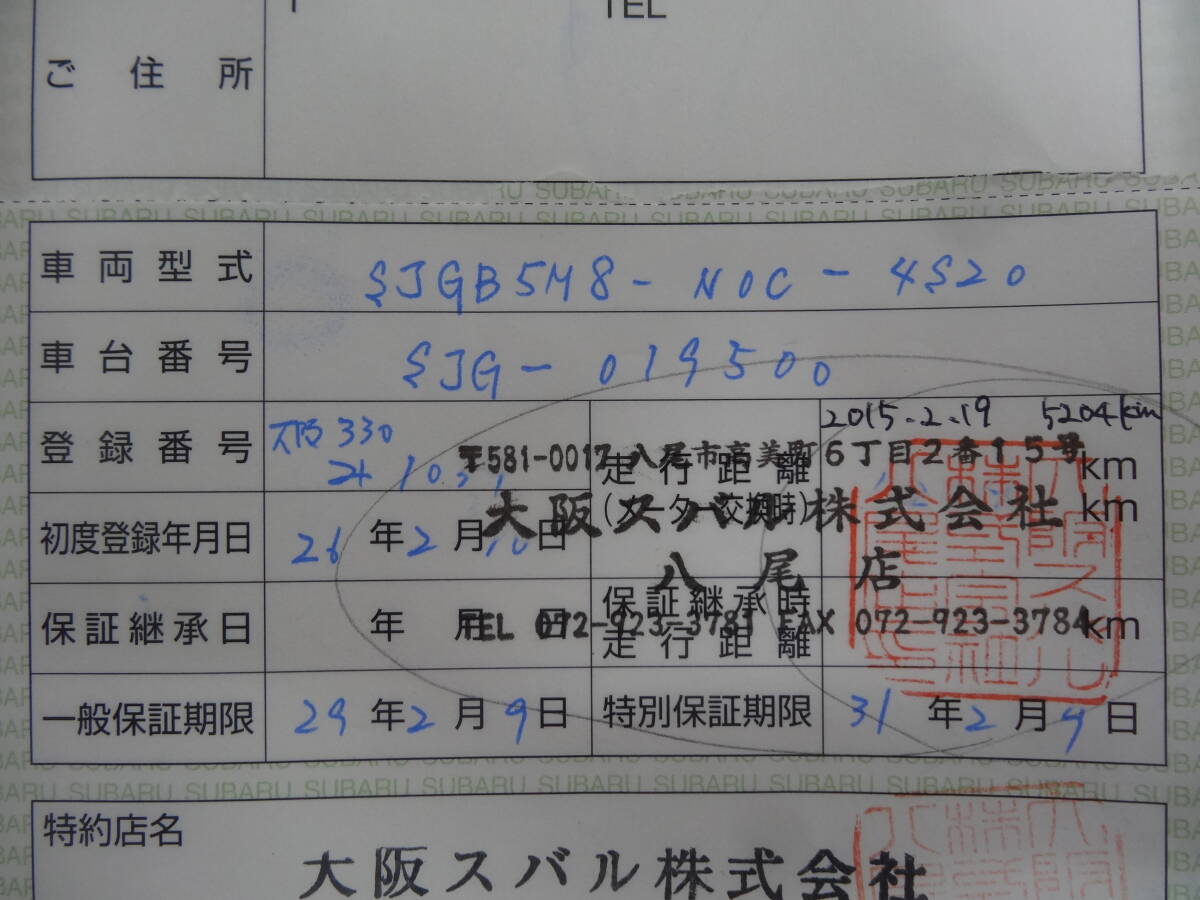 〒 TEL
ご住所
SUBARU SUBARU SUBARU SUBARU SUBARU SUBARU SUBARU
車両型式 SJGB5M8-NOC-4S20
車台番号 SJG-019500
登録番号 大阪330
走行距離 2015-2.19 5204km
km
(メーター交換時) km
〒581-0017 八尾市高美町6丁目2番15号
大阪スバル株式会社
八尾店
TEL 072-923-3781 FAX 072-923-3784
初度登録年月日 26年2月10日
保証継承日 年 月 日
保証継承時走行距離 km
一般保証期限 29年2月9日 特別保証期限 31年2月9日
SUBARU SUBARU SUBARU SUBARU SUBARU SUBARU SUBARU
特約店名
大阪スバル株式会社